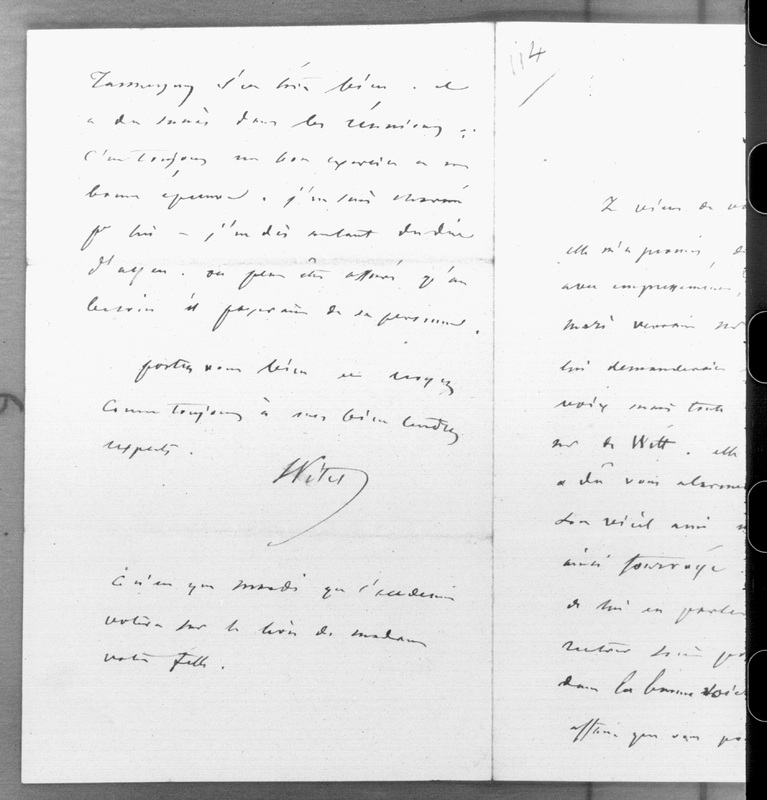 s'en très bien. il
a du succès dans les réunions :
c'est toujours un bon exercice et une
bonne épreuve. j'en suis charmé
pr lui – j'en dis autant du duc
d'ayen. on peut être assuré qu'au
besoin il payerait de sa personne.
portez vous bien et croyez
comme toujours à mes bien tendres
respects.
Vitet
Ce n'est que mardi que l'académie
votera sur le livre de madame
votre fille.
114
Je viens de
elle m'a promis,
avec empressement,
mari
lui demanderait
voix mais toute
sur de Witt. elle
a dû vous alarmer
son vieil ami
ainsi fourvoyé
de lui en parler
retour
dans la bonne voie
affaire que vous